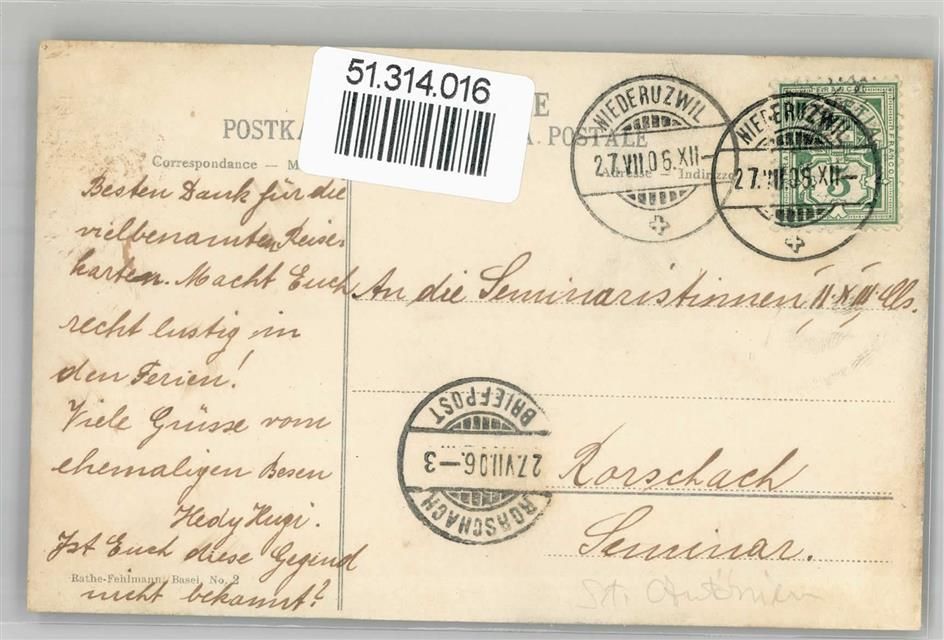 51.314.016
POSTKA
A POSTALE
Correspondance — M
Adresse — Indirizzo
NIEDERUZWIL
27.VII.06.XII—
NIEDERUZWIL
27.VII.06.XII—
5
Besten Dank für die
vielbenamten Reise-
karten. Macht Euch
recht lustig in
den Ferien!
Viele Grüsse vom
ehemaligen Besen
Hedy Hugi.
Ist Euch diese Gegend
nicht bekannt?
An die Seminaristinnen, II. X III. Cls.
Rorschach
Seminar.
BRIEFPOST
27.VII.06.—3
RORSCHACH
Rathe-Fehlmann, Basel, No. 2
St. Antönien